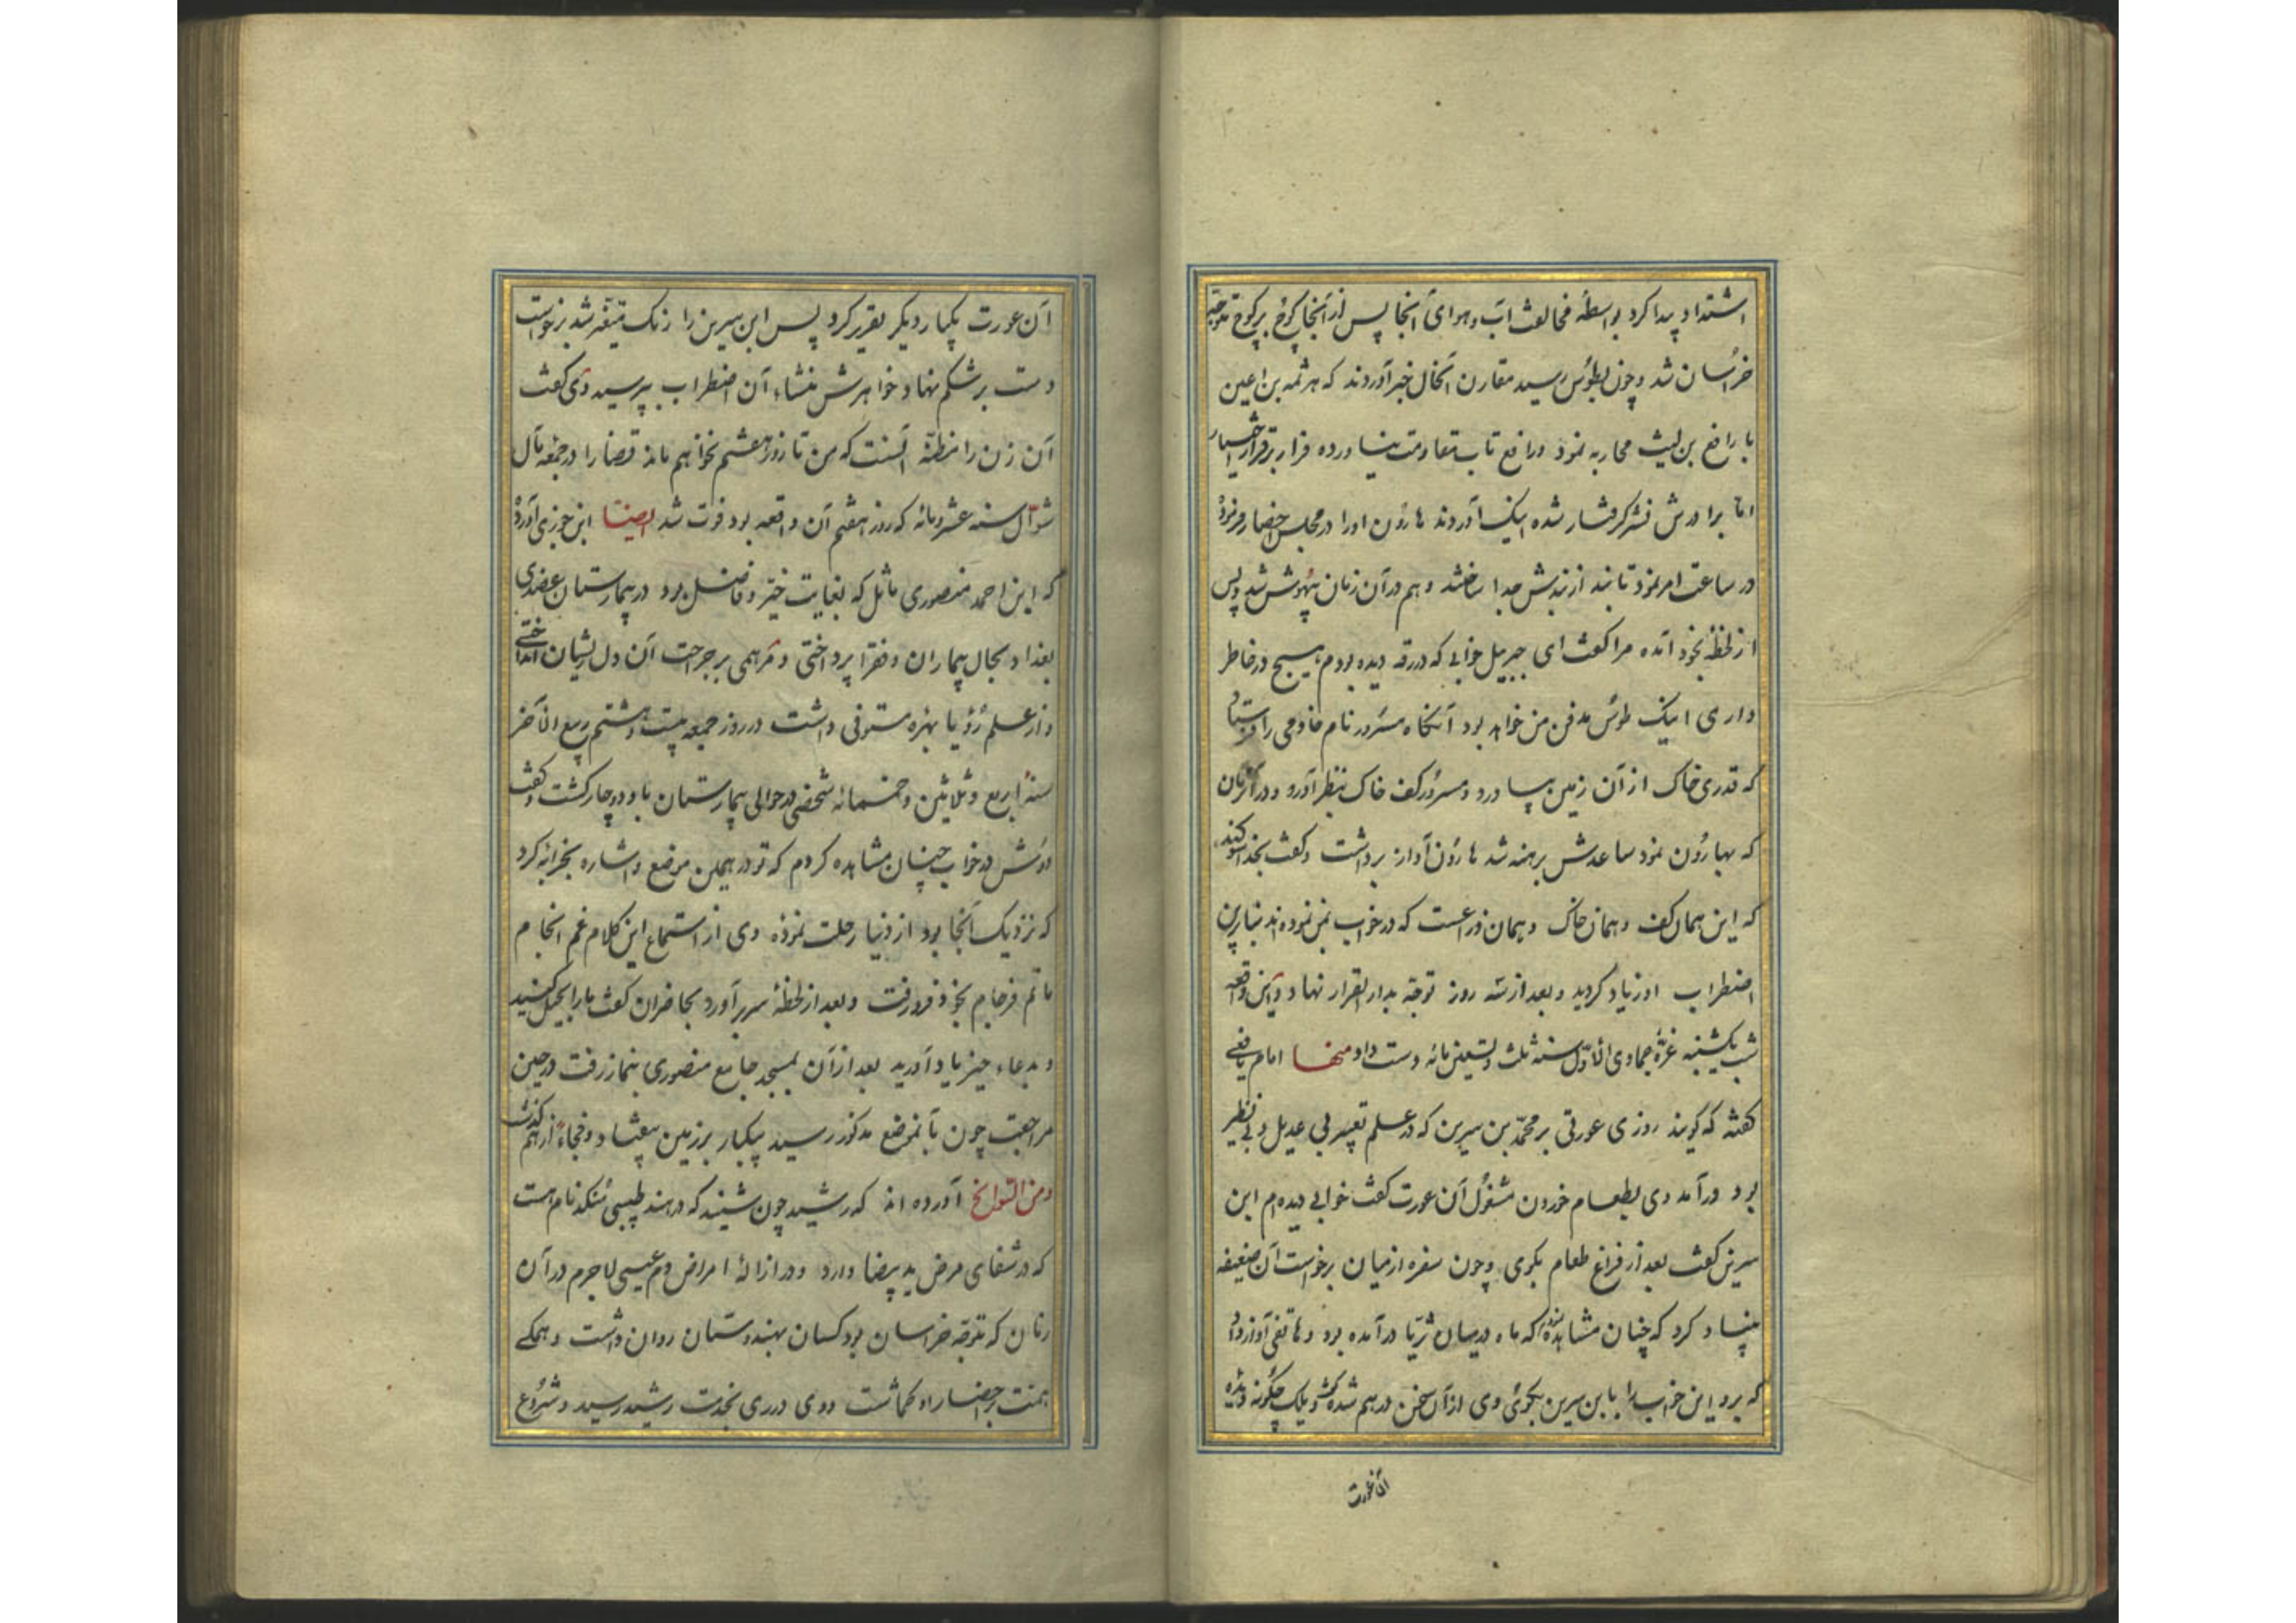 اشتداد پیدا کرد بواسطهٔ مخالفت آب و هوای آنجا پس از آنجا کوچ بر کوچ متوجه
خراسان شد و چون بطوس رسید مقارن آنحال خبر آوردند که هرثمه بن اعین
با رافع بن لیث محاربه نمود و رافع تاب مقاومت نیاورده فرار بر قرار اختیار
اما برادرش گرفتار شده اینک آوردند هارون او را در مجلس احضار فرموده
در ساعت امر نمود تا بند از بندش جدا ساختند و هم در آن زمان بیهوش شد و پس
از لحظهٔ بخود آمده مرا گفت ای جبریل خوابی که در رقه دیده بودم هیچ در خاطر
داری اینک طوس مدفن من خواهد بود آنگاه مسرور نام خادمی را فرستاد
که قدری خاک از آن زمین بیاورد و مسرور کف خاک بنظر آورد و در آن زمان
که بهارون نمود ساعدش برهنه شد هارون آواز برداشت و گفت بخدا سوکند
که این همان کف و همان خاک و همان ذراعست که در خواب بمن نموده‌اند بنابرین
اضطراب او زیاد گردید و بعد از سه روز توجه بدار القرار نهاد و این واقعه
شب یکشنبه غرهٔ جمادی الاول سنه ثلث و تسعین مائه دست داد منها امام یافعی
گفته که گویند روزی عورتی بر محمد بن سیرین که در علم تعبیر بی عدیل و بی نظیر
بود درآمد وی بطعام خوردن مشغول آن عورت گفت خوابی دیده‌ام ابن
سیرین گفت بعد از فراغ طعام بگوی و چون سفره از میان برخواست آن ضعیفه
بنیاد کرد که چنان مشاهده شد که ماه در میان ثریا درآمده بود و هاتفی آواز داد
که برو این خواب را بابن سیرین بگوئی وی از آن سخن در هم شده گفت و یلک چگونه دیدهٔ
آن عورت
آن عورت یکبار دیگر تقریر کرد پس ابن سیرین را رنگ متغیر شد برخواست
دست بر شکم نهاد خواهرش منشاء آن اضطراب پرسید وی گفت
آن زن را مظنه آنست که من تا روز هشتم نخواهم ماند قضا را در جمعه
شوال سنه عشر و مائه که روز هفتم آن واقعه بود فوت شد ایضا ابن جوزی آورده
که ابن احمد منصوری که بغایت خیر و فاضل بود در بیمارستان عضدی
بغداد بحال بیماران و فقرا پرداختی و مرهمی بر جراحت آن دل ریشان انداختی
و از علم رؤیا بهرهٔ مستوفی داشت در روز جمعه بیست و هشتم ربیع الآخر
سنهٔ اربع و ثلاثین و خمسمائه شخصی در حوالی بیمارستان باو دوچار گشت و گفت
دوش در خواب چنان مشاهده کردم که تو در همین موضع و اشاره بخرابه کرد
که نزدیک آنجا بود از دنیا رحلت نموده وی از استماع این کلام غم انجام
ماتم فرجام بخود فرو رفت و بعد از لحظهٔ سر برآورد بحاضران گفت ما را بحل کنید
و بدعاء خیر یاد آورید بعد از آن بمسجد جامع منصوری بنماز رفت در حین
مراجعت چون بآنموضع مذکور رسید یکبار بر زمین بیفتاد و فجاءة از هم گذشت
و من التواریخ آورده‌اند که رشید چون شنید که در هند طبیبی منکه نام هست
که در شفای مرض ید بیضا دارد و در ازالهٔ امراض دم عیسی لاجرم در آن
زمان که متوجه خراسان بود کسان بهندوستان روان داشت و همگی
همت بر احضار او گماشت و وی در ری بخدمت رشید رسید و شروع